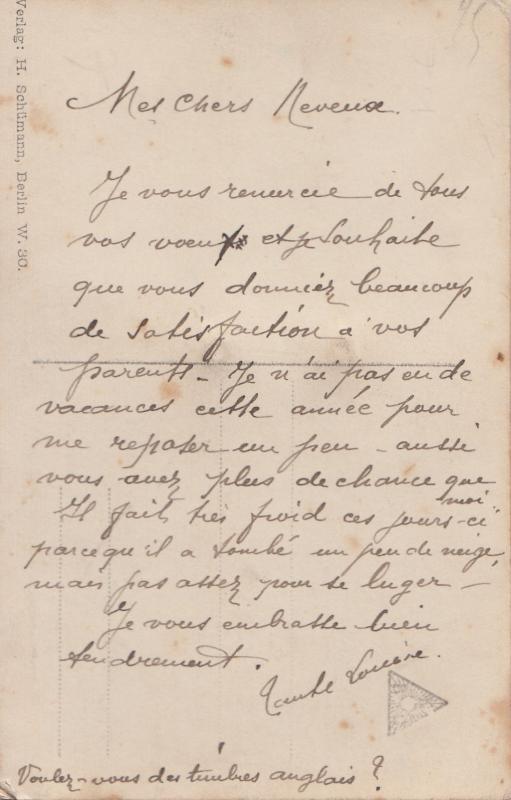 Verlag: H. Schümann, Berlin W. 30.
Mes chers Neveux.
Je vous remercie de tous
vos voeux et je souhaite
que vous donniez beaucoup
de satisfaction à vos
parents. Je n'ai pas eu de
vacances cette année pour
me reposer un peu - aussi
vous avez plus de chance que
moi.
Il fait très froid ces jours-ci
parce qu'il a tombé un peu de neige,
mais pas assez pour se luger -
Je vous embrasse bien
tendrement.
Tante Louise.
Voulez-vous des timbres anglais ?